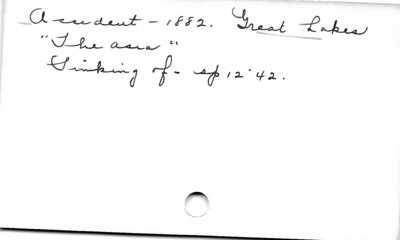 Accident - 1882. Great Lakes
"The Asia"
Sinking of - sp 12'42.